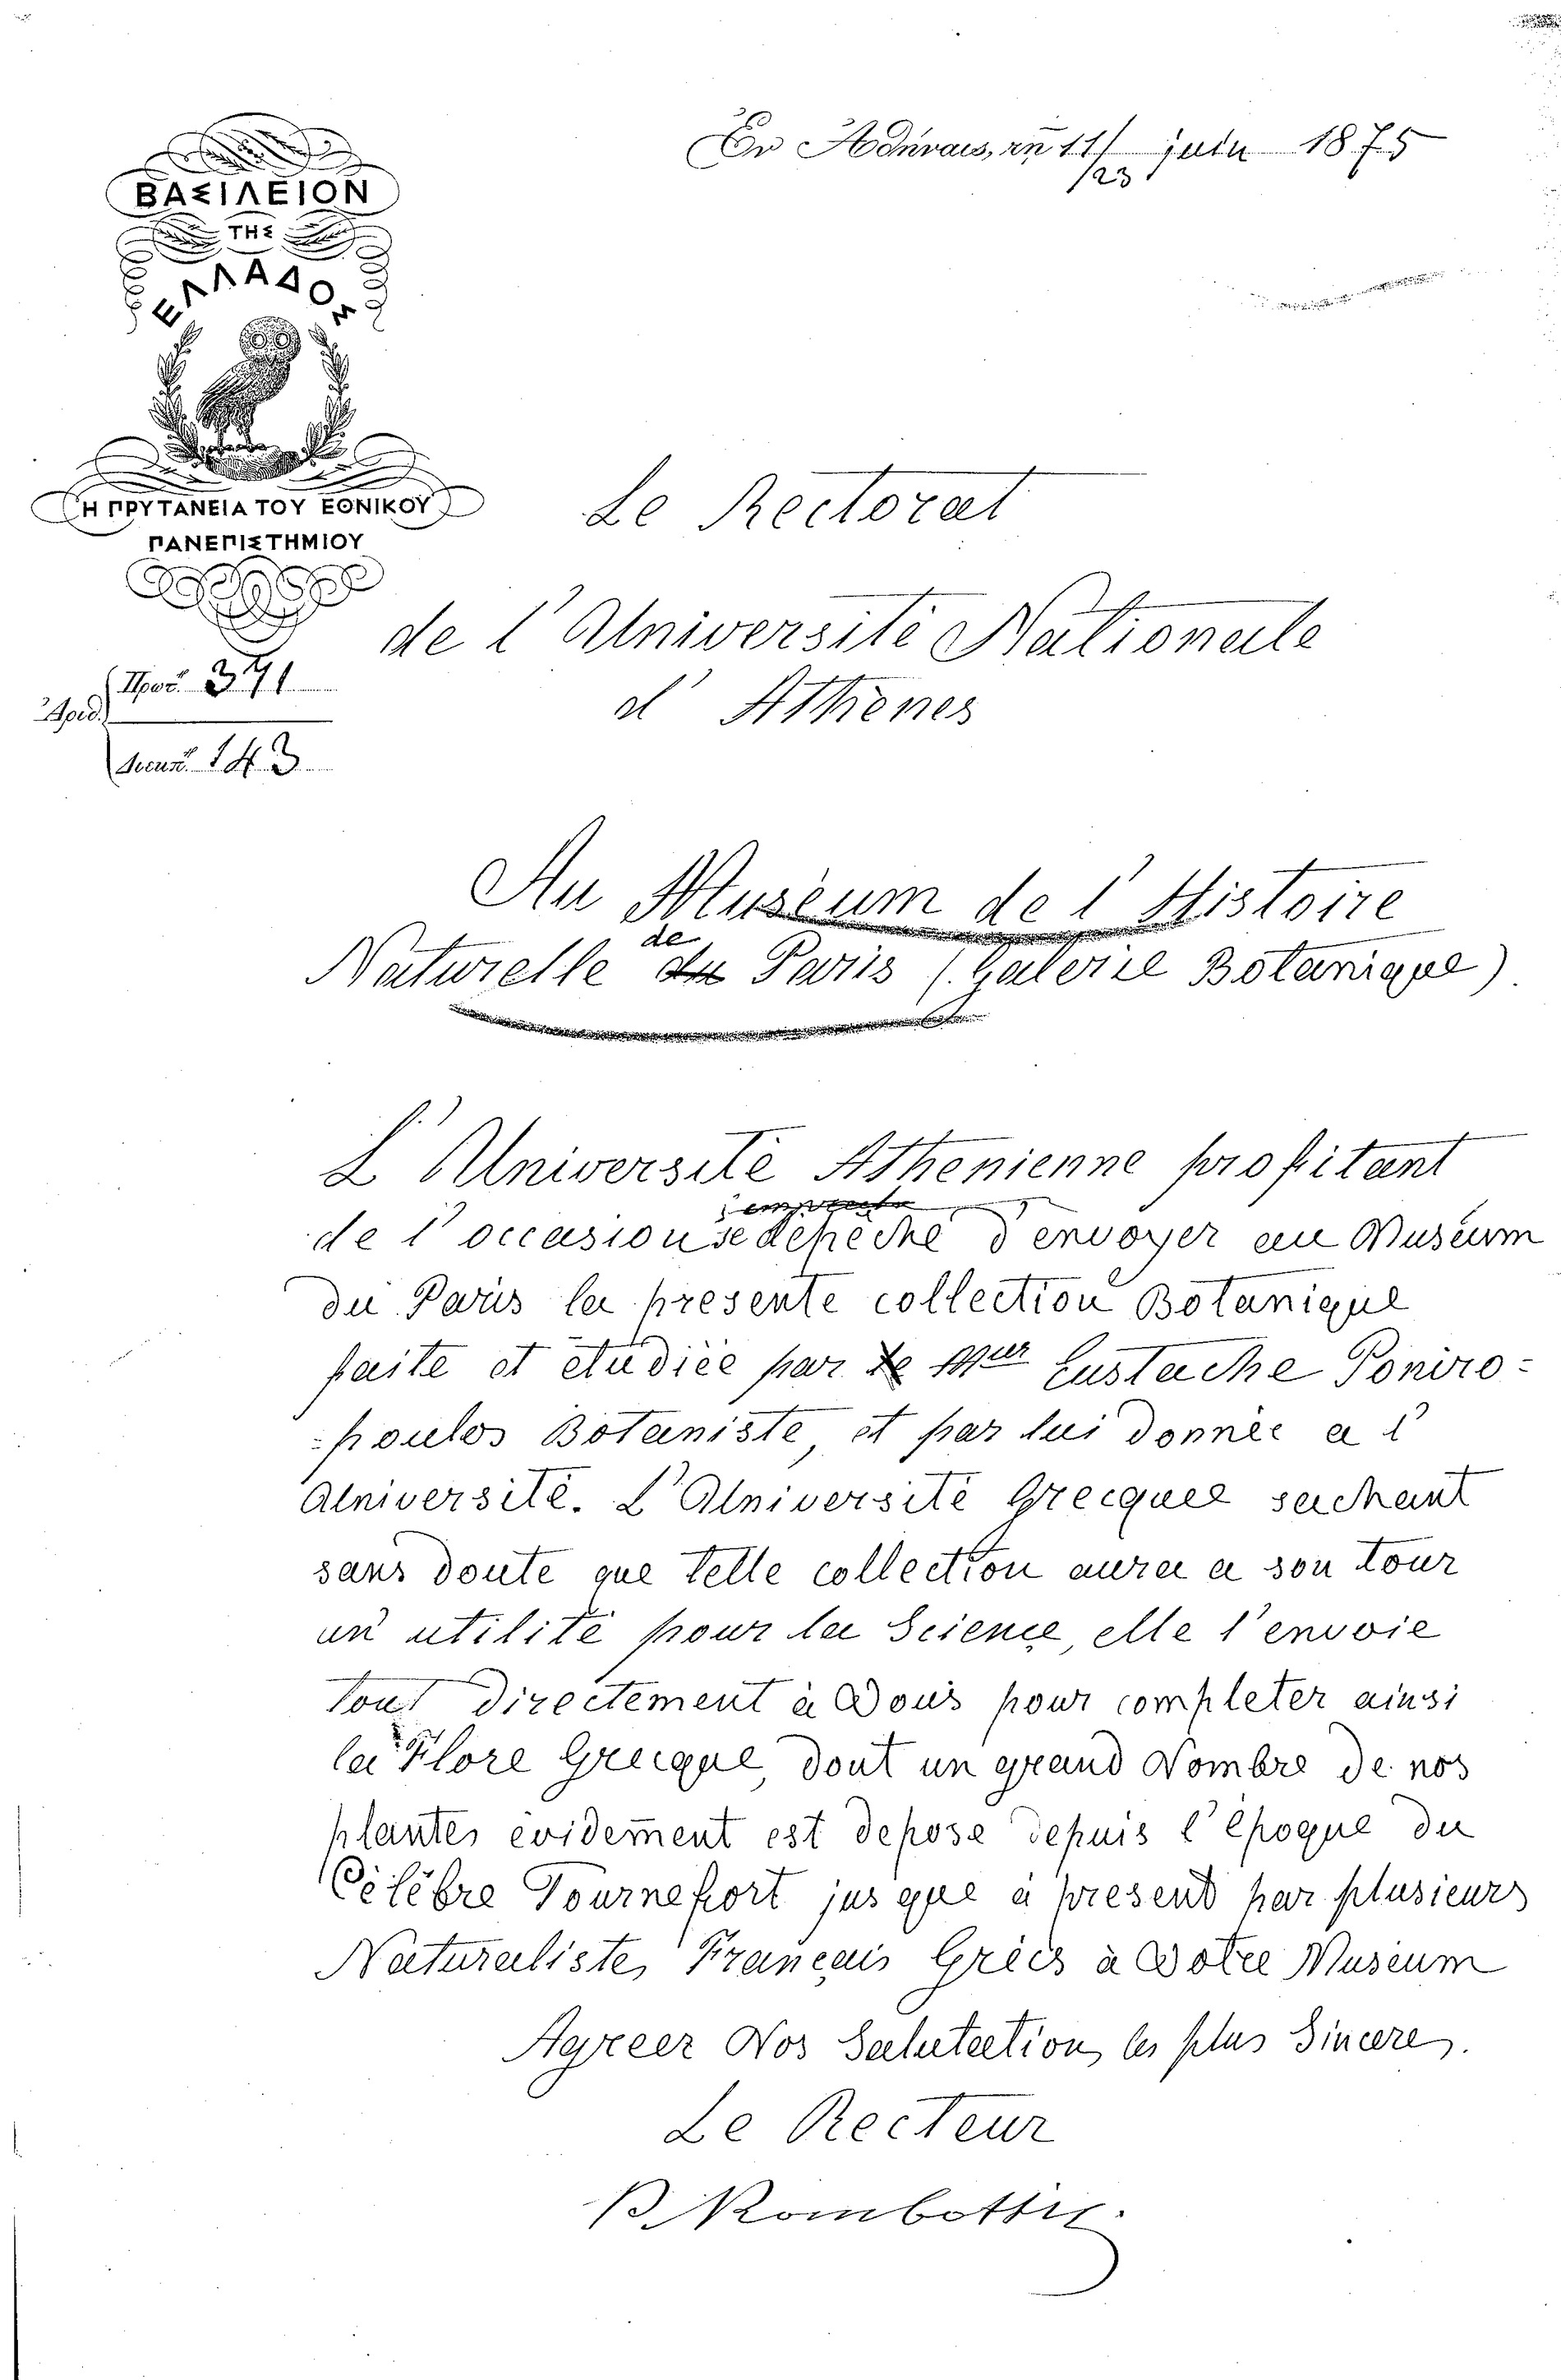 Ἐν Ἀθήναις, τῇ 11/23 juin 1875
ΒΑΣΙΛΕΙΟΝ
ΤΗΣ
ΕΛΛΑΔΟΣ
Η ΠΡΥΤΑΝΕΙΑ ΤΟΥ ΕΘΝΙΚΟΥ
ΠΑΝΕΠΙΣΤΗΜΙΟΥ
Πρωτ. 371
Ἀριθ.
Διεκπ. 143
Le Rectorat
de l'Université Nationale
d'Athènes
Au Muséum de l'Histoire
de
Naturelle du Paris (Galerie Botanique)
L'Université Athenienne profitant
s'empresse
de l'occasion se dépèche d'envoyer au Muséum
du Paris la presente collection Botanique
faite et étudiée par le Mur Eustache Poniro=
=poulos Botaniste, et par lui donnée a l'
Université. L'Université Grecque sachant
sans doute que telle collection aura a son tour
un utilité pour la Science, elle l'envoie
tout directement à Vous pour completer ainsi
la Flore Grecque, dont un grand Nombre de nos
plantes evidem̄ent est depose depuis l'époque du
Célèbre Tournefort jusque à present par plusieurs
Naturalistes Français Grècs à Votre Muséum
Agreer Nos Salutations les plus Sinceres.
Le Recteur